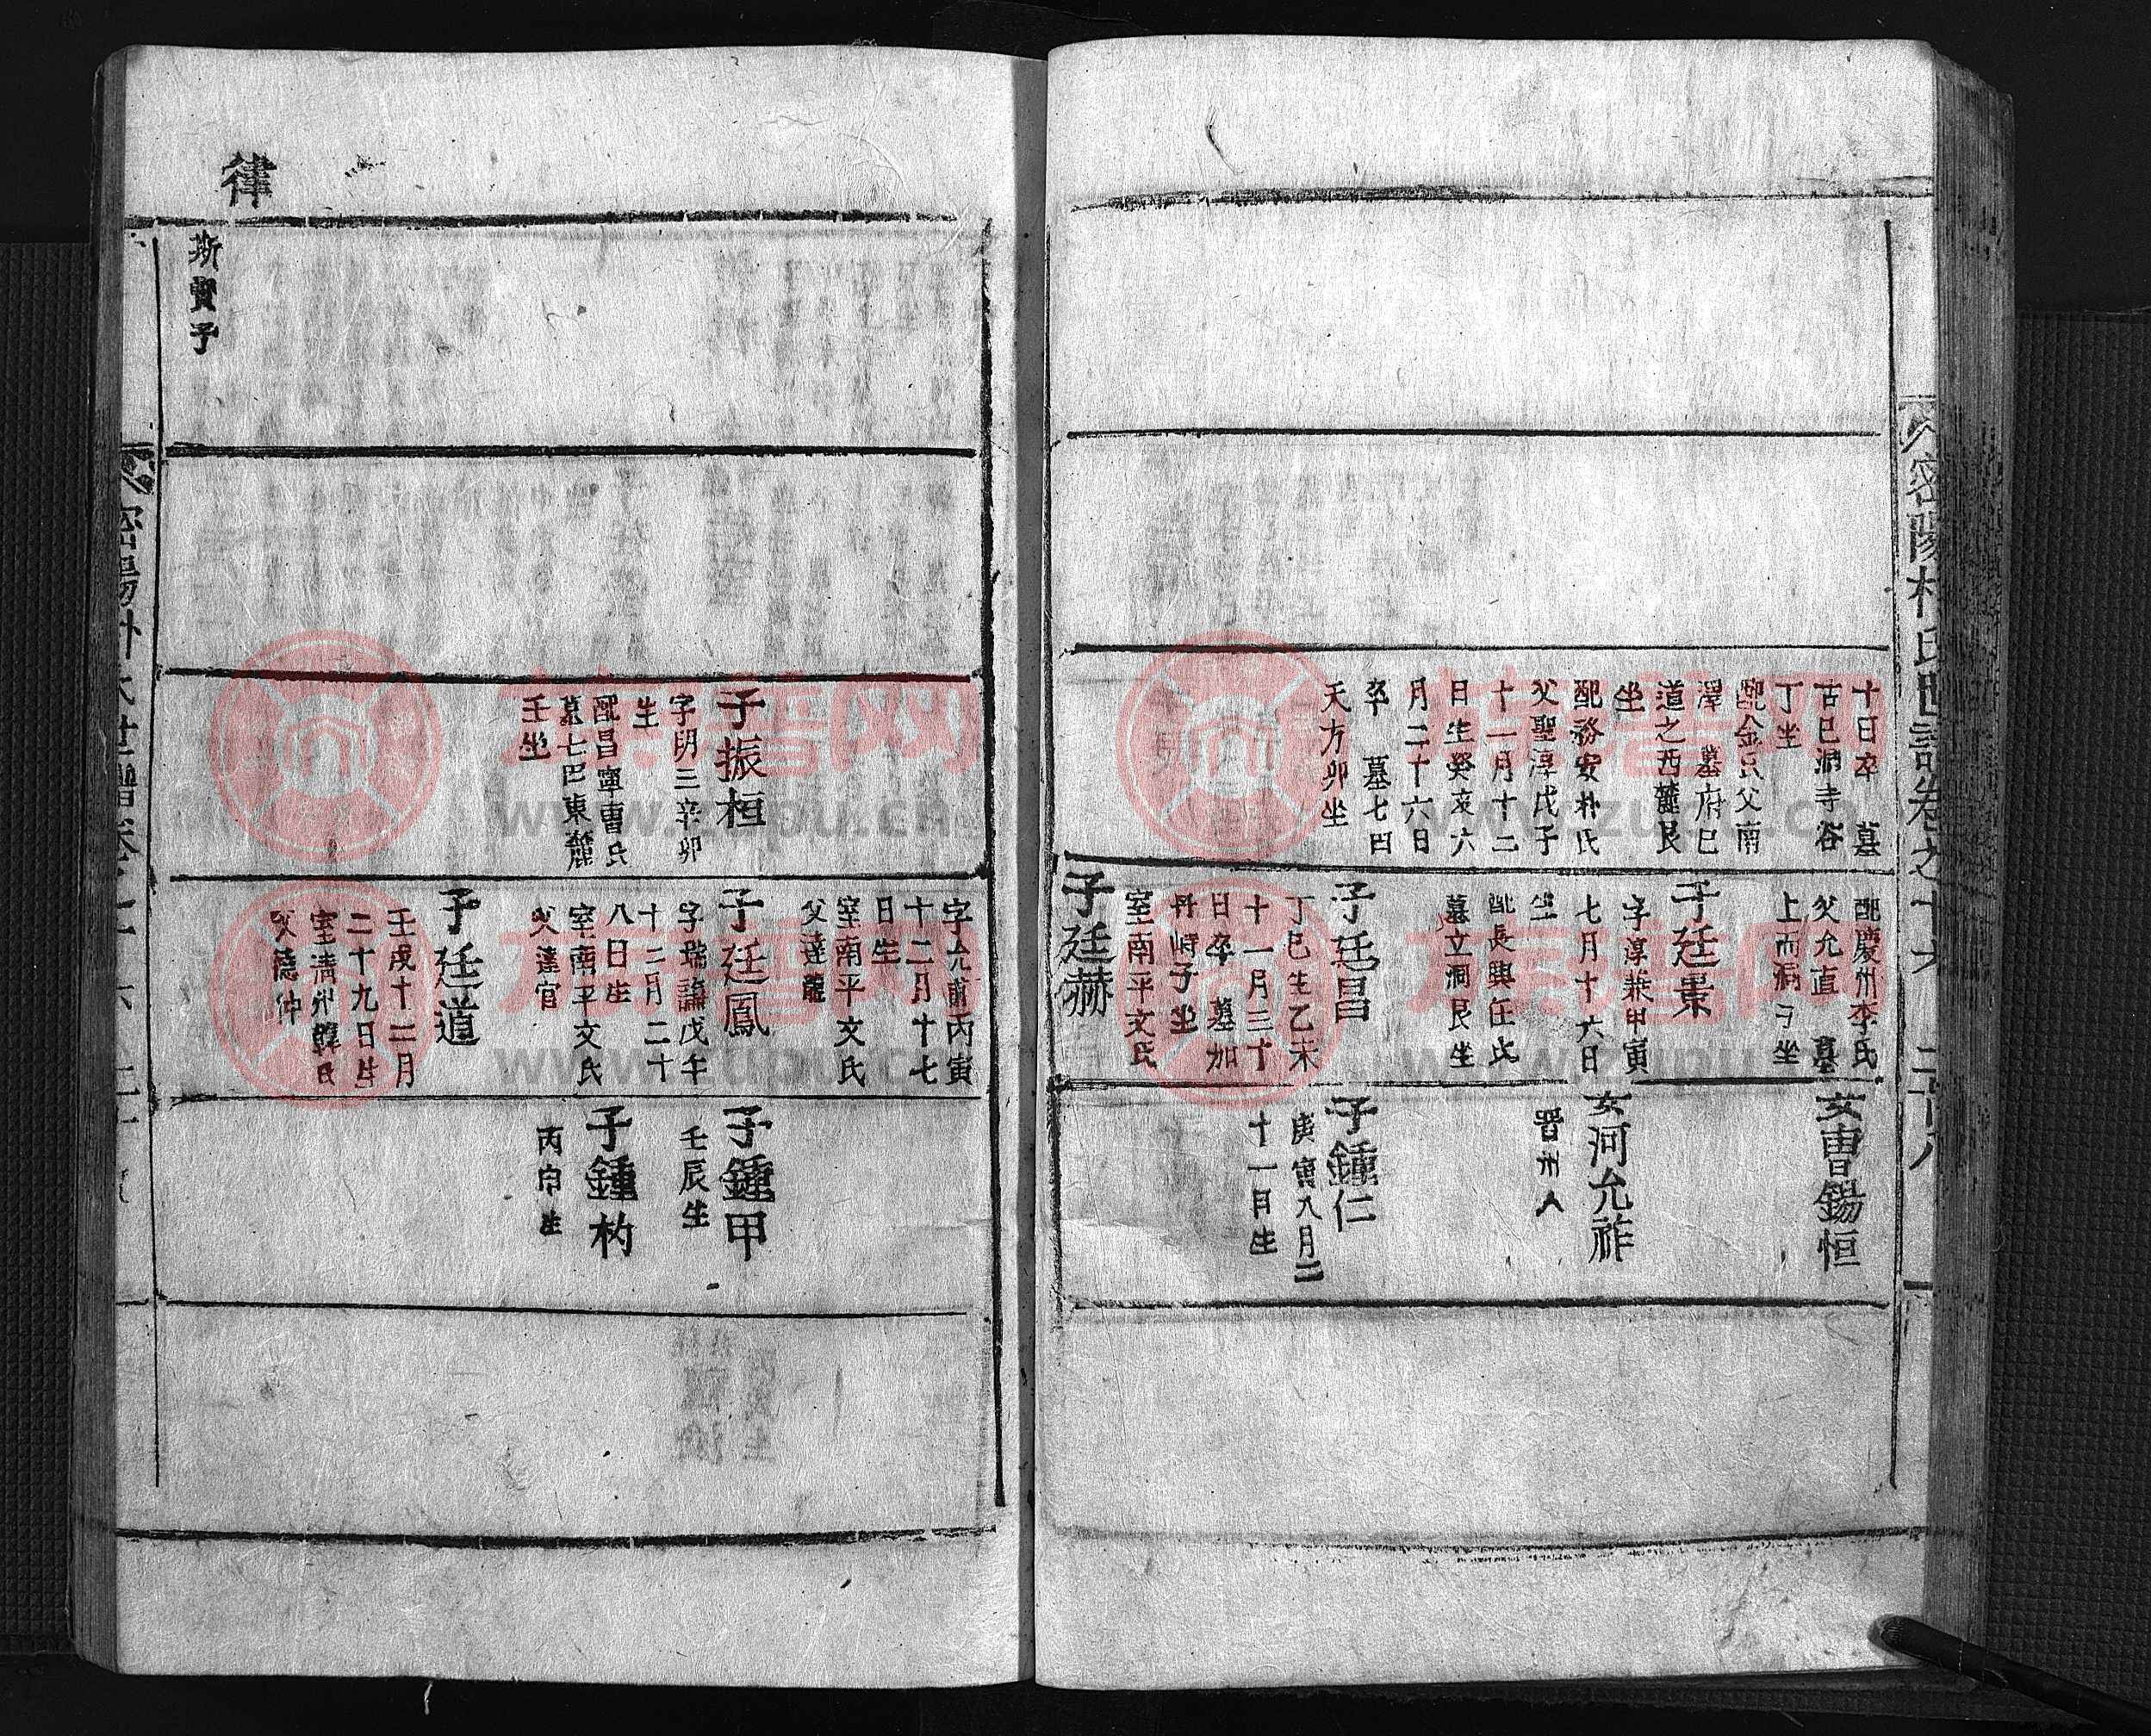 密陽朴氏世譜卷之十六
十日卒　墓
古巳洞寺谷
丁坐
配金氏父南
澤　墓府巳
道之西麓艮
坐
配務安朴氏
父聖淳戊子
十一月十二
日生癸亥六
月二十六日
卒　墓七田
天方卯坐
配慶州李氏
父允直　墓
上而洞丁坐
子廷景
字淳兼甲寅
七月十六日
生
配長興任氏
墓立洞艮坐
子廷昌
丁巳生乙未
十一月三十
日卒　墓加
丹峙子坐
室南平文氏
子廷赫
女曺錫恒
女河允祚
晋州人
子鍾仁
庚寅八月二
十一日生
字允甫丙寅
十二月十七
日生
室南平文氏
父達龍
子振桓
字明三辛卯
生
配昌寧曺氏
墓七巴東麓
壬坐
子廷鳳
字瑞論戊午
十二月二十
八日生
室南平文氏
父達官
子廷道
壬戌十二月
二十九日生
室淸州韓氏
父德仲
子鍾甲
壬辰生
子鍾杓
丙申生
律
斯賢子
密陽朴氏世譜卷之十六
志譜网
www.zupu.cn